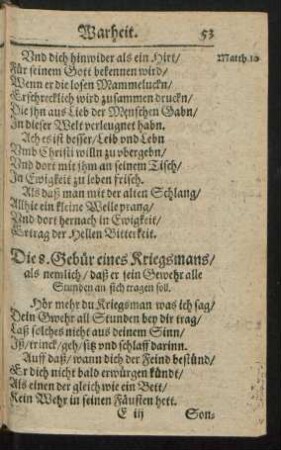 Warheit. 53
Vnd dich hinwider als ein Hirt/ Matth. 10
Für seinem Gott bekennen wird/
Wenn er die losen Mammeluckn/
Erschrecklich wird zusammen druckn/
Die jhn aus Lieb der Menschen Gabn/
In dieser Welt verleugnet habn.
Ach es ist besser/ Leib vnd Lebn
Vmb Christi willn zu vbergebn/
Vnd dort mit jhm an seinem Tisch/
In Ewigkeit zu leben frisch.
Als daß man mit der alten Schlang/
Allhie ein kleine Weile prang/
Vnd dort hernach in Ewigkeit/
Ertrag der Hellen Bitterkeit.
Die 8. Gebür eines Kriegsmans/
als nemlich/ daß er sein Gewehr alle
Stunden an sich tragen sol.
Hör mehr du Kriegsman was ich sag/
Dein Gwehr all Stunden bey dir trag/
Laß solches nicht aus deinem Sinn/
Iß/ trinck/ geh/ sitz vnd schlaff darinn.
Auff daß/ wann dich der Feind bestünd/
Er dich nicht bald erwürgen kündt/
Als einen der gleich wie ein Beit/
Kein Wehr in seinen Fäusten hett.
E iij Son-